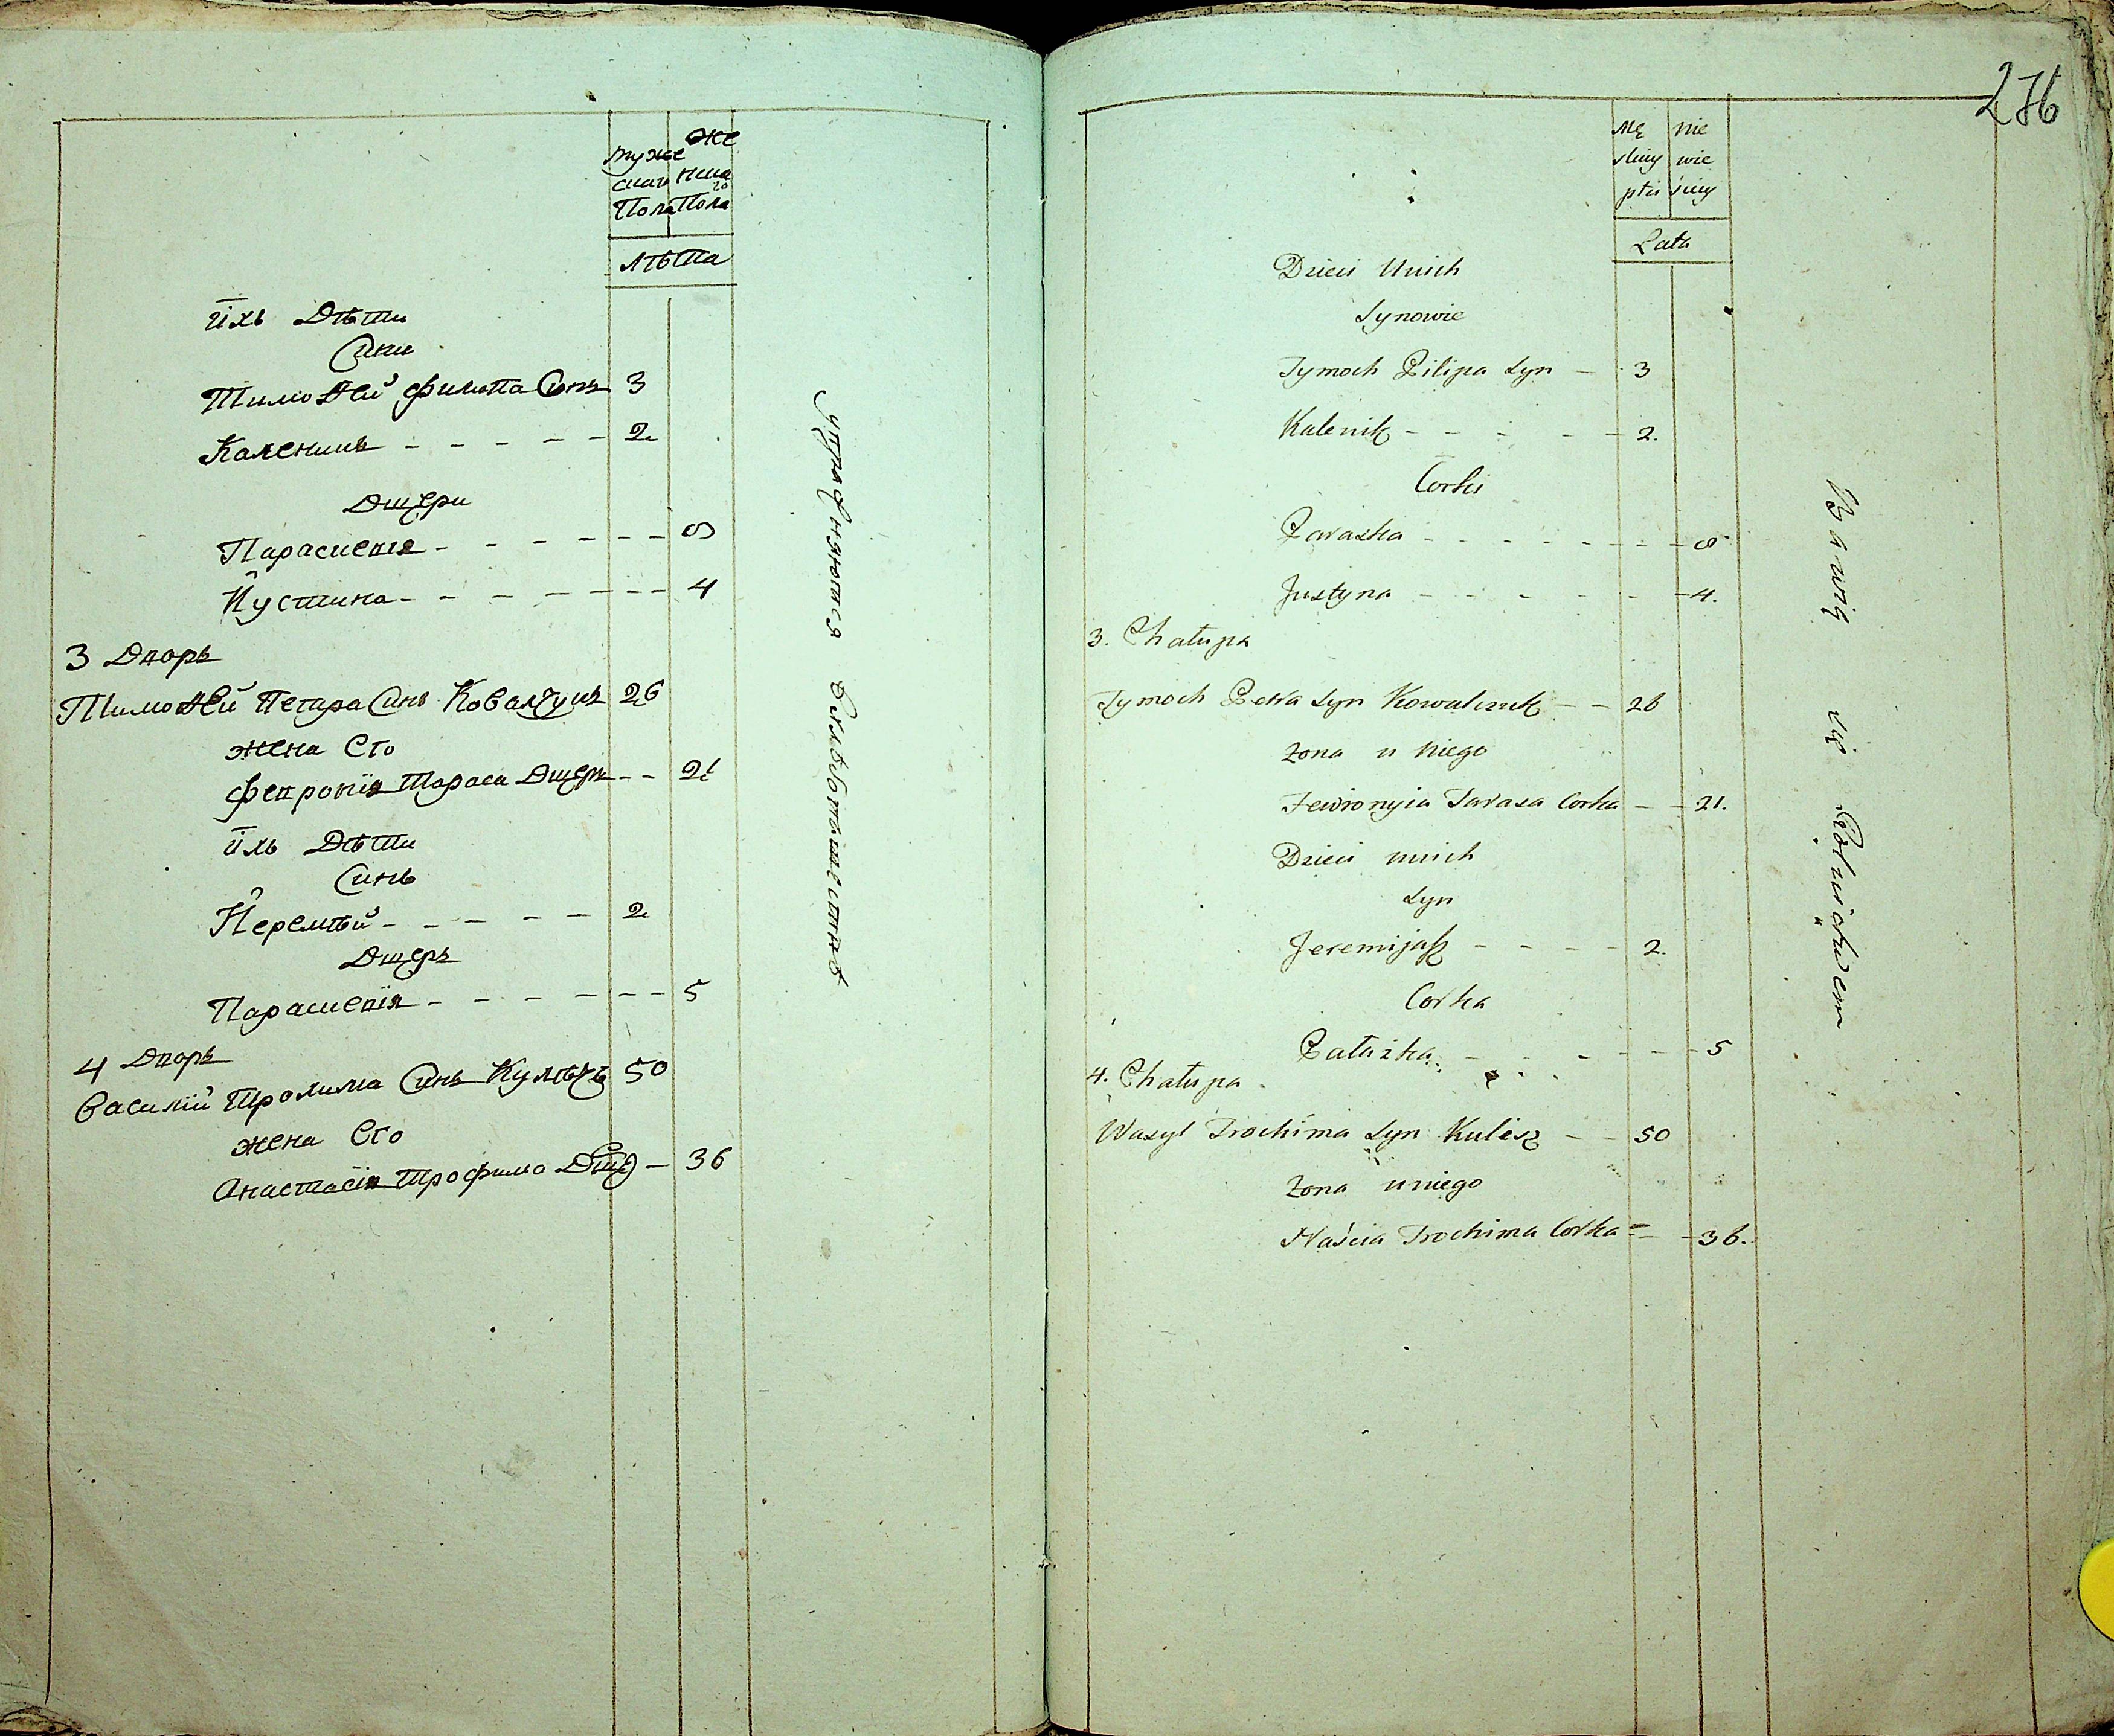 муже же
скаго нска
го
Пола Пола
лѣта
ихъ Дѣти
Сини
Тимоѳей Филипа Синъ 3
Каленикъ - - - - - 2
Дщери
Параскевія - - - - - - 8
Иустина - - - - - - - 4
3 Дворъ
Тимоѳей Петра Синъ Ковалчукъ 26
жена Его
Февронія Тараса Дщерь - - 21
ихъ Дѣти
Синъ
Иеремѣй - - - - - 2
Дщерь
Параскевія - - - - - - 5
4 Дворъ
Василій Трохима Синъ Кулѣшъ 50
жена Его
Анастасія Трофима Дще - 36
упражняются Хлѣбопашествѣ
276
Mę nie
skiey wie
płci skiey
Lata
Dzieci Unich
Synowie
Tymoch Pilipa Syn - 3
Kalenik - - - - - 2.
Corki
Paraska - - - - - - - 8
Justyna - - - - - - 4.
3. Chałupa
Tymoch Petra Syn Kowalczuk - - 26
Zona u niego
Fewronyia Tarasa Corka - - 21.
Dzieci unich
Syn
Jeremijasz - - - - 2.
Corka
Parazka - - - - - 5
4. Chałupa
Wasyl Trochima Syn Kulesz - - 50
Zona uniego
Naścia Trochima Corka - - 36.
Bawią się Rolnictwem